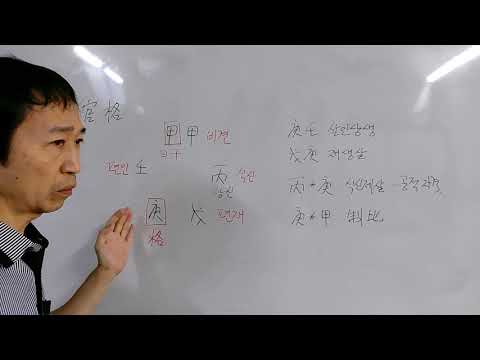 官格
甲 甲 비견
일간
편인 壬
丙 식신
상신
庚 戊 편재
格
庚 壬 살인상생
戊 庚 재생살
丙 庚 식신제살
庚 甲 制比